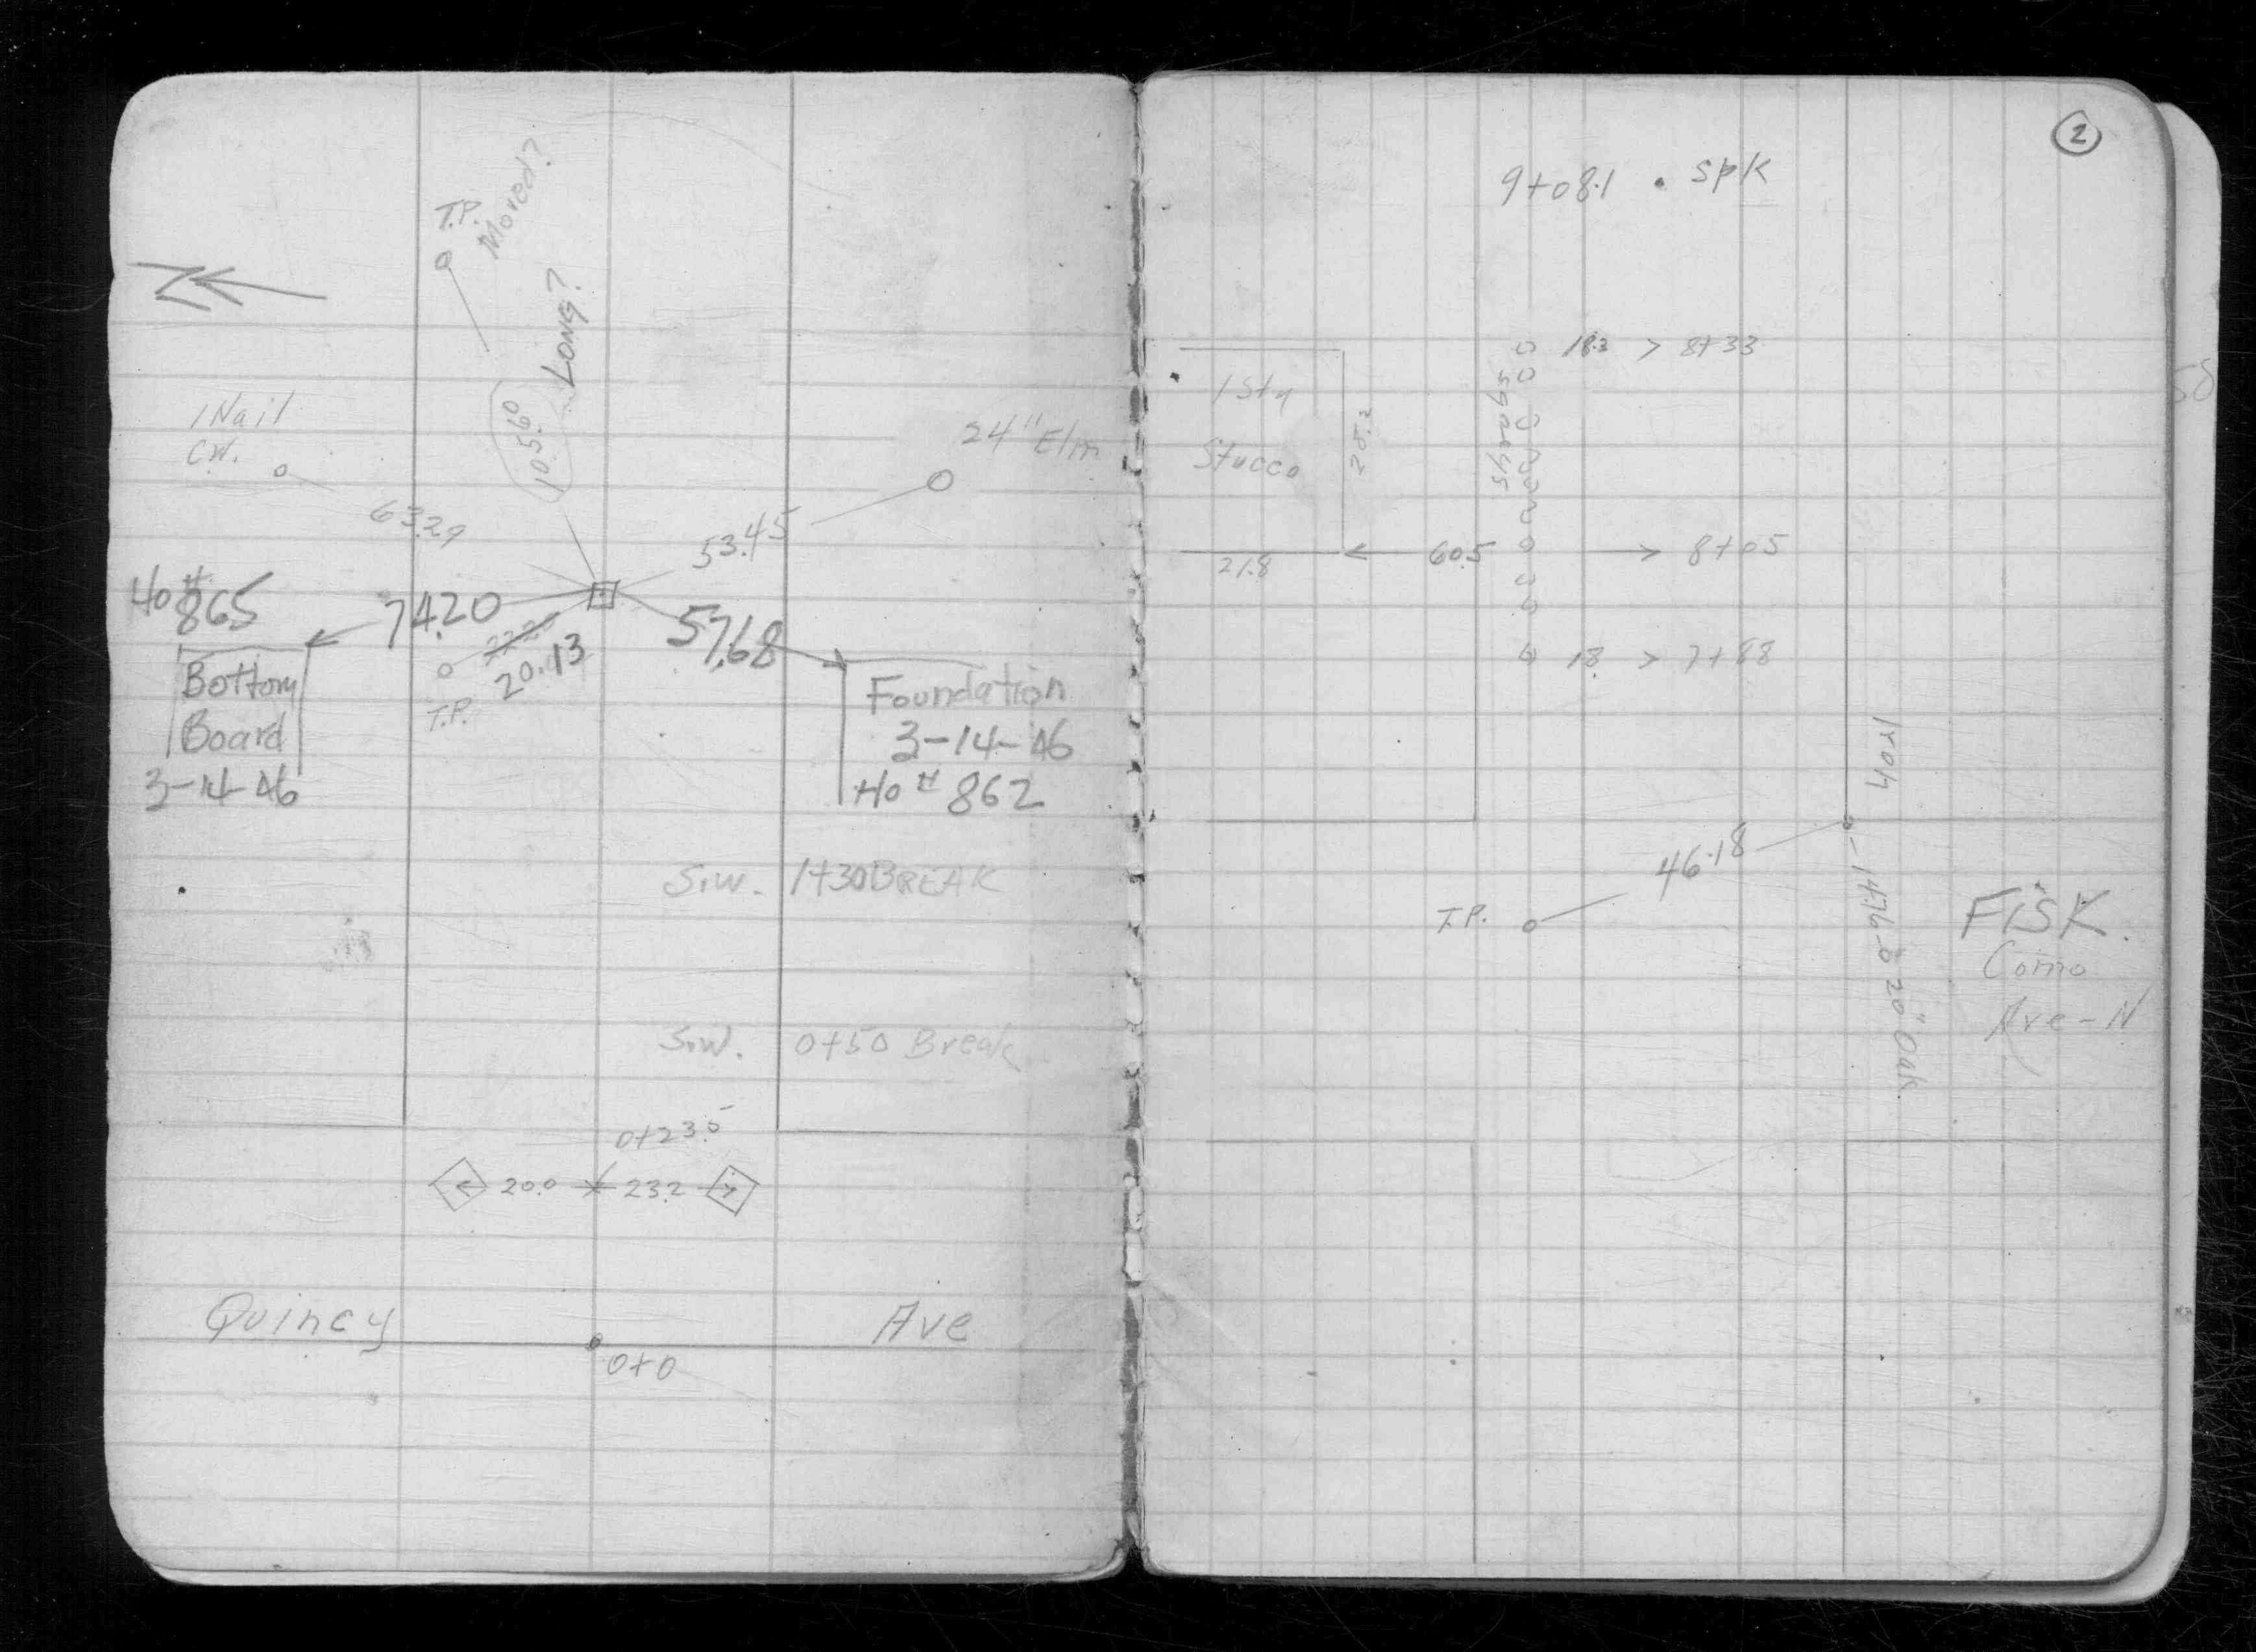 T.P.
Moved?
LONG?
105.60
1 Nail
C.W.
63.29
24" Elm
53.45
Ho #
865
74.20
57.68
22.20
20.13
T.P.
Bottom
Board
3-14-46
Foundation
3-14-46
Ho # 862
S.W. 1+30 BREAK
S.W. 0+50 Break
0+23.5
20.0
23.2
Quincy Ave
0+0
2
9+08.1 . spk
18.3 > 8+33
1 Sty
Stucco
21.8
60.5
8+05
18. > 7+88
Iron
46.18
T.P.
20" Oak
FISK.
Como
Ave-N